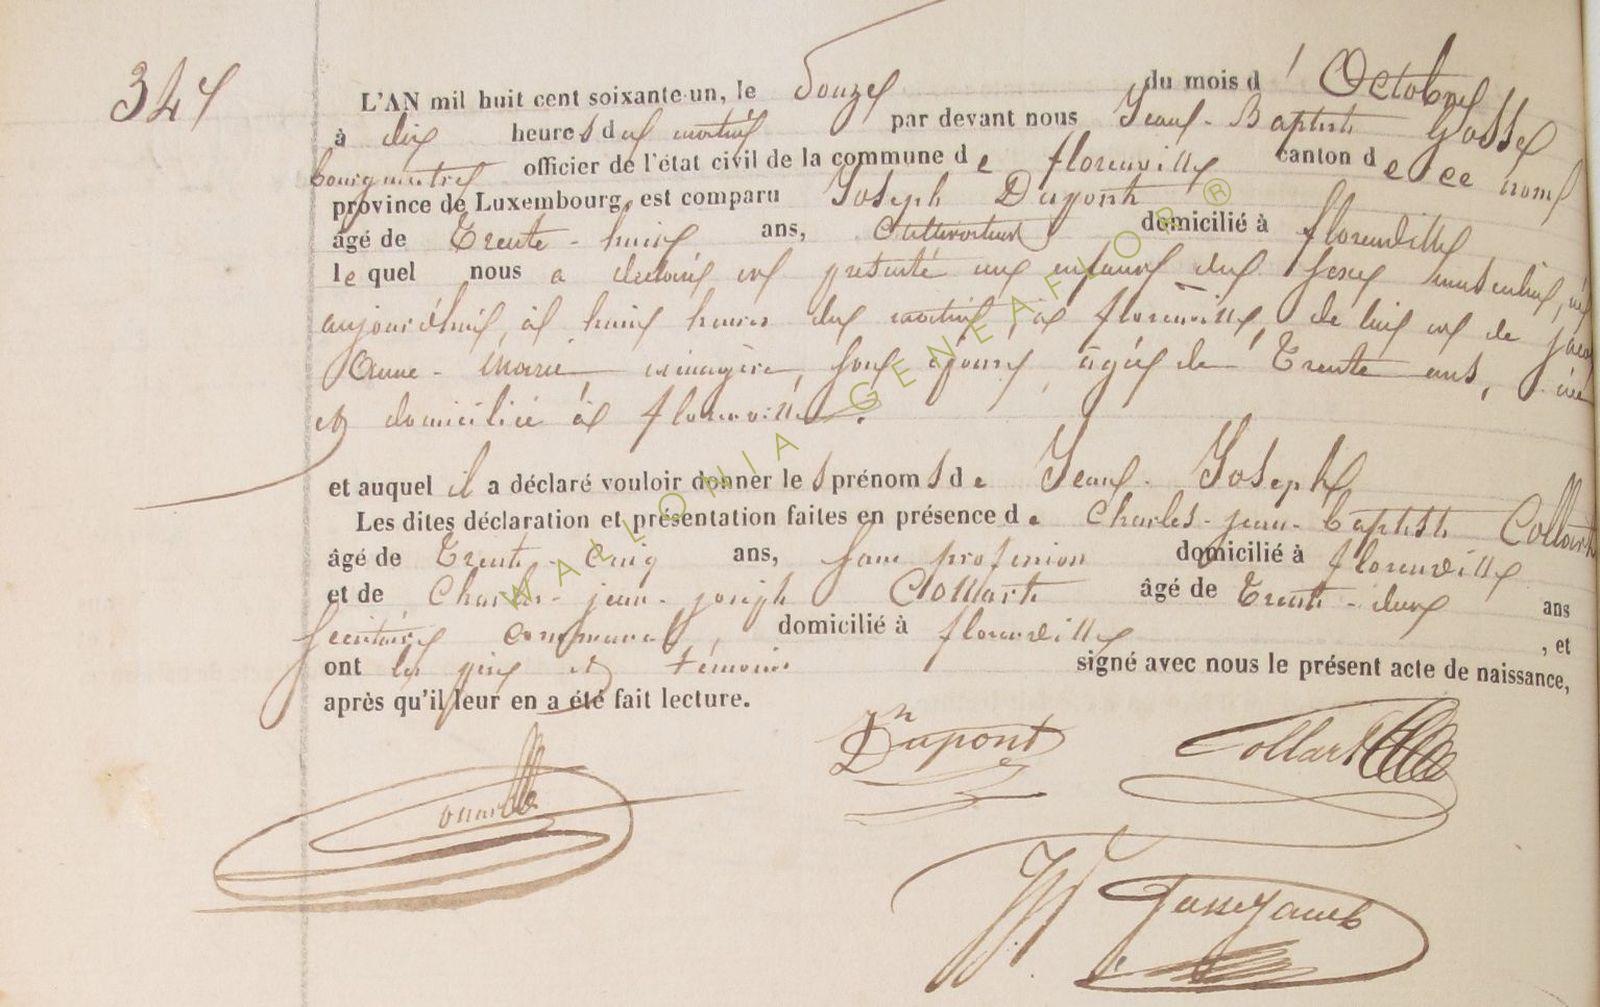 L'AN mil huit cent soixante-un, le Douze du mois d' Octobre
à dix heures du matin par devant nous Jean-Baptiste Gosse
bourgmestre officier de l'état civil de la commune de florenville canton de ce nom
province de Luxembourg, est comparu Joseph Dupont
âgé de Trente-huit ans, Cultivateur domicilié à florenville
lequel nous a déclaré et présenté un enfant du sexe masculin, né
aujourd'hui, à huit heures du matin, à florenville, de lui et de
Anne-Marie ménagère, son épouse, âgée de Trente ans, née
et domiciliée à florenville.
et auquel il a déclaré vouloir donner les prénoms de Jean-Joseph
Les dites déclaration et présentation faites en présence de Charles-jean-baptiste Collart
âgé de Trente-cinq ans, sans profession domicilié à florenville
et de Charles-jean-joseph Collart âgé de Trente-deux ans
secrétaire communal, domicilié à florenville, et
ont les père et témoins signé avec nous le présent acte de naissance,
après qu'il leur en a été fait lecture.
Dupont Collart
WALLONIA GENEAFLOR ®